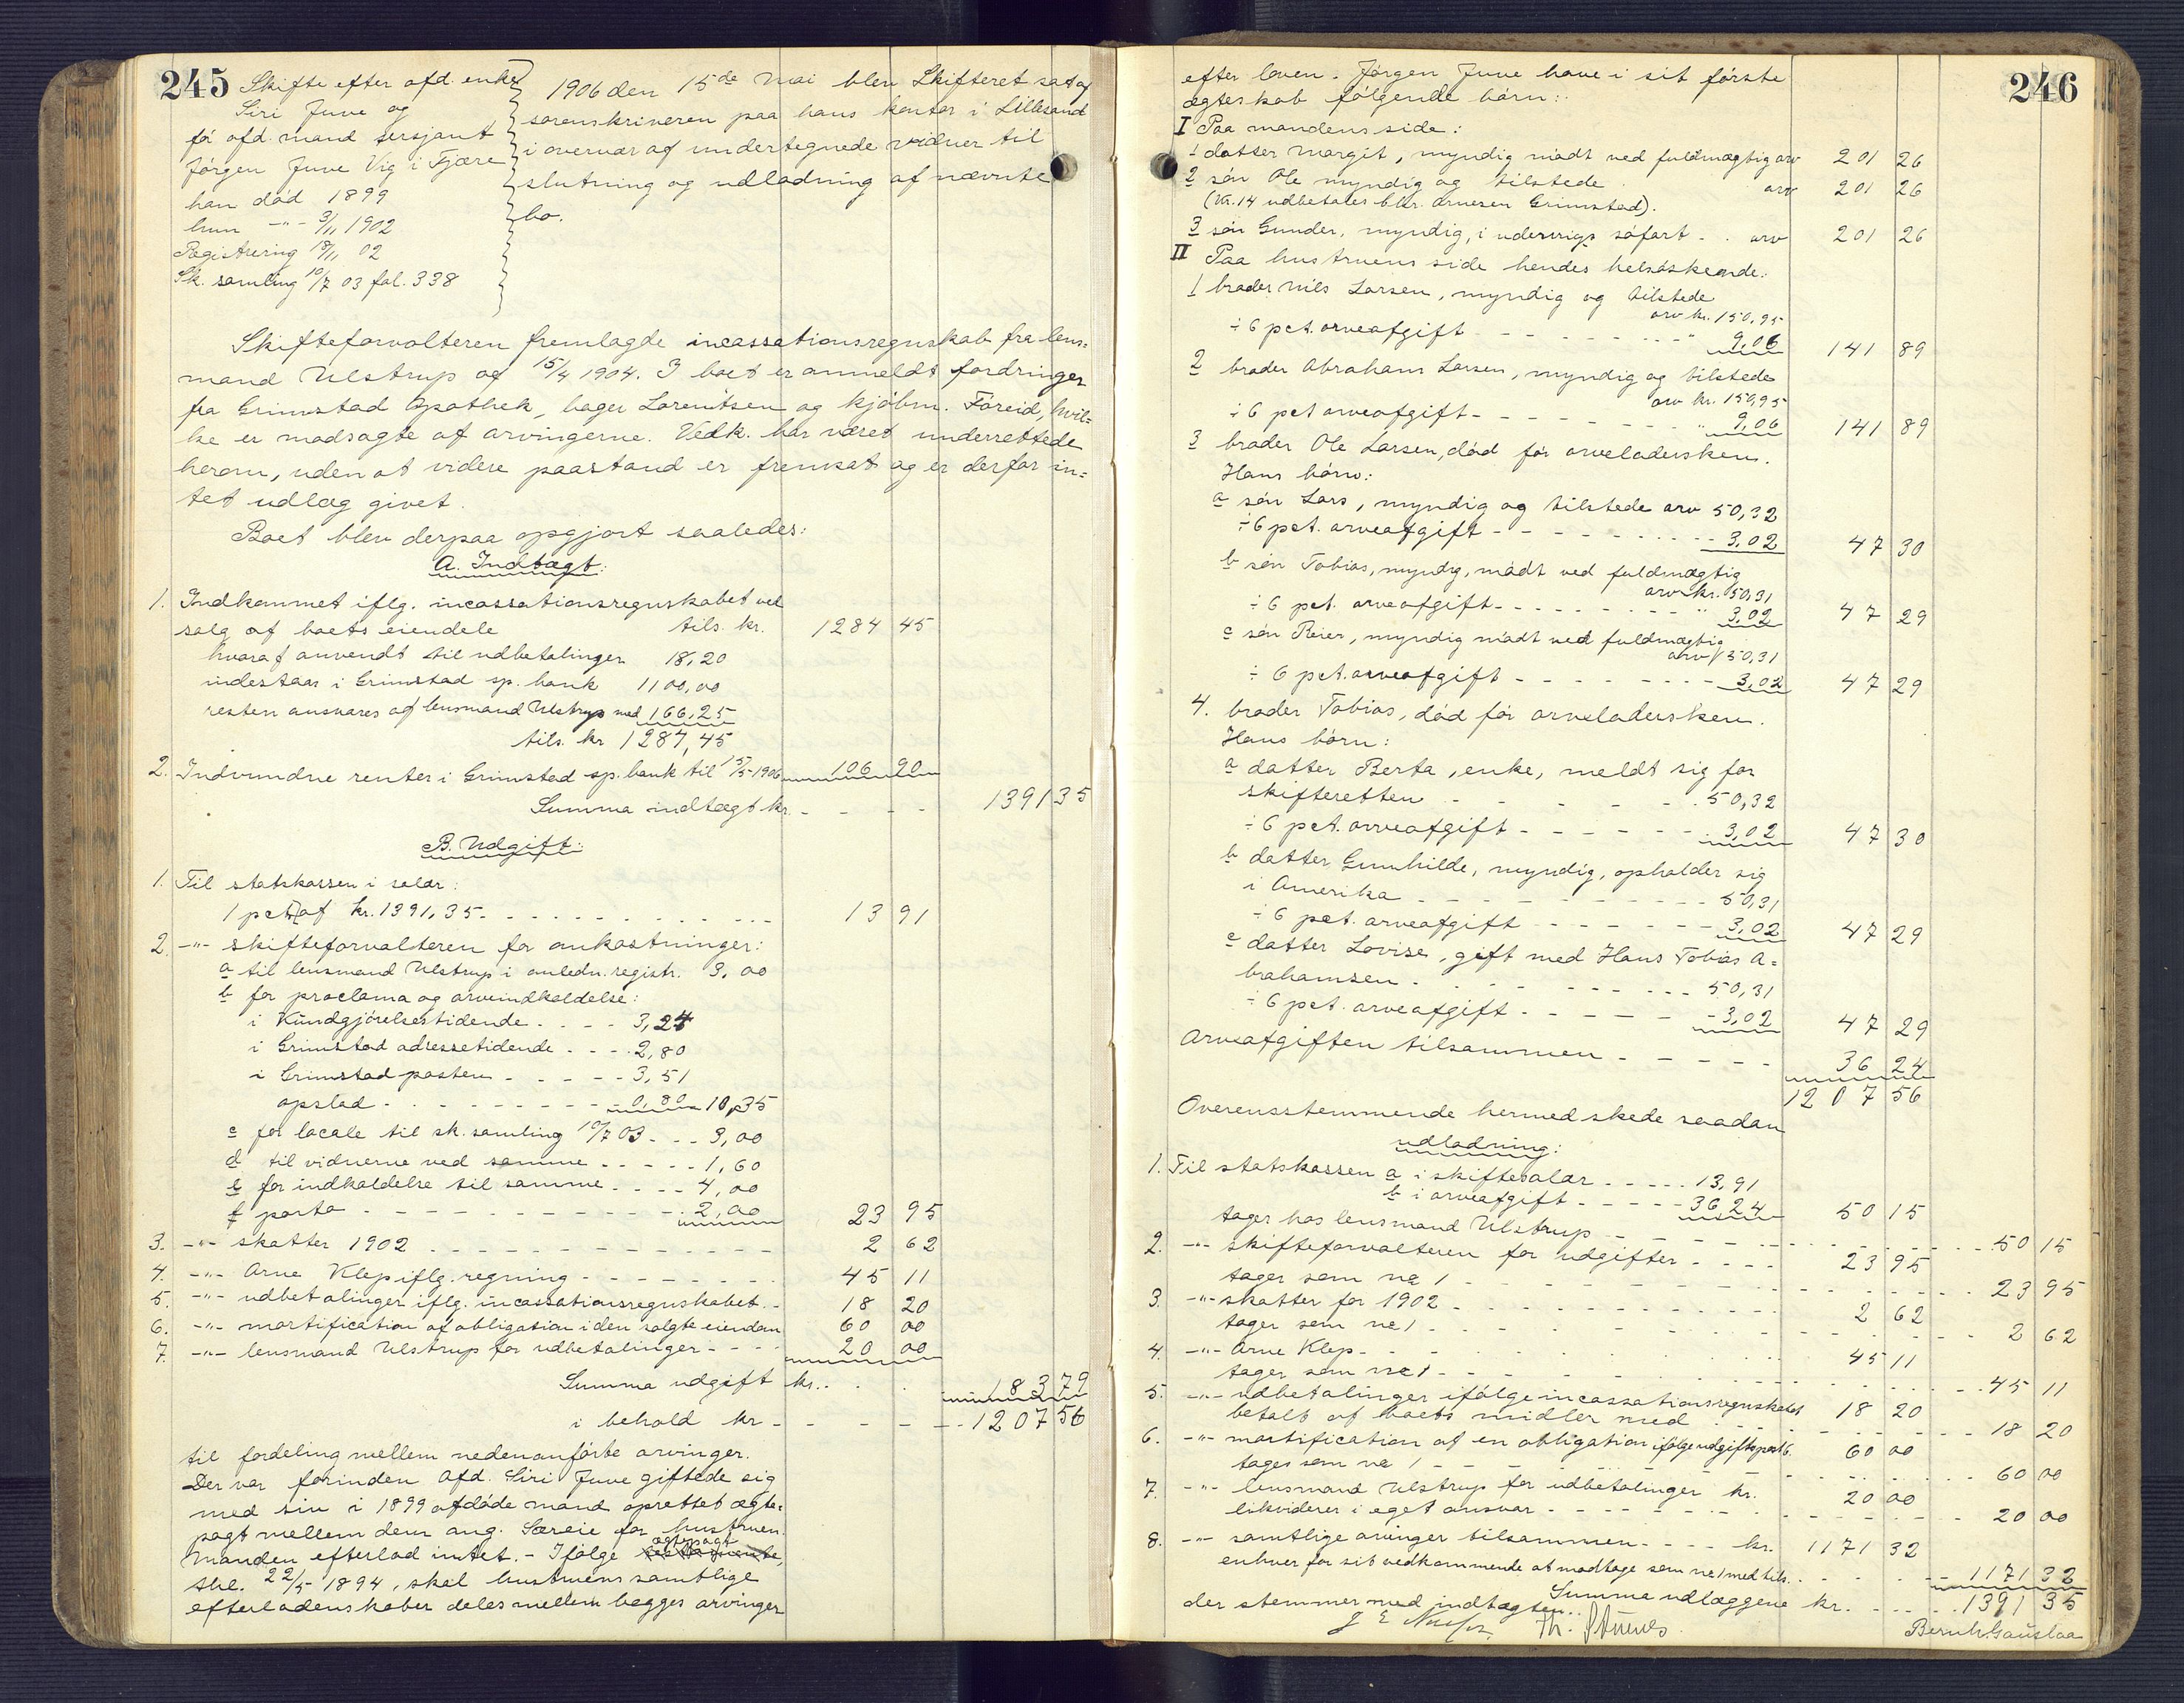 245
Skifte efter afd. enke
Siri Juve og
før afd. mand sersjant
Jørgen Juve Vig i Fjære
han død 1899
hun -"- 3/11 1902
Registrering 18/11 02
Sk. samling 10/7 03 fol. 338
1906 den 15de Mai blev Skifteret sat af
sorenskriveren paa hans kontor i Lillesand
i overvær af undertegnede vidner til
slutning og udlodning af nævnte
bo.
Skifteforvalteren fremlagde incassationsregnskab fra lens-
mand Ulstrup af 15/4 1904. I boet er anmeldt fordringer
fra Grimstad Apothek, bager Lorentsen og kjøbm. Føreid, hvil-
ke er modsagte af arvingerne. Vedk. har været underrettede
herom, uden at videre paastand er fremsat og er derfor in-
tet udlæg givet.
Boet blev derpaa opgjort saaledes:
A. Indtægt:
1. Indkommet iflg. incassationsregnskabet ved
salg af boets eiendele tils. kr. 1284 45
hvoraf anvendt til udbetalinger 18,20
indestaar i Grimstad sp. bank 1100,00
resten ansvares af lensmand Ulstrup med 166,25
tils. kr 1284,45
2. Indvundne renter i Grimstad sp. bank til 15/5-1906 106 90
Summa indtægt kr. - - - 1391 35
B. Udgift:
1. Til statskassen i salær:
1 pct. af kr. 1391,35 - - - 13 91
2 -"- skifteforvalteren for omkostninger:
a til lensmand Ulstrup i anledn. registr. 3,00
b for proclama og arveindkaldelse:
i Kundgjørelsestidende - - - 3,24
i Grimstad adressetidende - - - 2,80
i Grimstadposten - - - 3,51
opslad - - - 0,80 10,35
c for locale til sk. samling 10/7 03 - - 3,00
d til vidnerne ved samme - - - 1,60
e for indkaldelse til samme - - - 4,00
f porto - - - 2,00 23 95
3. -"- skatter 1902 - - - 2 62
4. -"- Arne Klep iflg. regning - - - 45 11
5. -"- udbetalinger iflg. incassationsregnskabet - 18 20
6. -"- mortification af obligation i den solgte eiendom 60 00
7. -"- lensmand Ulstrup for udbetalinger - - - 20 00
Summa udgift kr. - - 183 79
i behold kr - - - 1207 56
til fordeling mellem nedenanførte arvinger.
Der var forinden Afd. Siri Juve giftede sig
med sin i 1899 afdøde mand oprettet ægte-
pagt mellem dem ang. Særeie for hustruen.
Manden efterlod intet. - Ifølge ægtepagt
thl. 22/5 1894, skal hustruens samtlige
efterladenskaber deles mellem begges arvinger
246
efter loven. Jørgen Juve have i sit første
ægteskab følgende børn:
I Paa mandens side:
1 datter Margit, myndig mødt ved fuldmægtig arv 201 26
2 søn Ole myndig og tilstede arv 201 26
(Kr. 14 udbetales bkr. Arnesen Grimstad).
3 søn Gunder, myndig, i udenrigs søfart - . arv 201 26
II Paa hustruens side hendes helsøskende:
1 broder Nils Larsen, myndig og tilstede
arv kr. 150,95
÷ 6 pct. arveafgift - - - " 9,06 141 89
2 broder Abraham Larsen, myndig og tilstede
arv kr. 150,95
÷ 6 pct arveafgift - - - " 9,06 141 89
3 broder Ole Larsen, død før arveladersken.
Hans børn:
a søn Lars, myndig og tilstede arv 50,32
÷ 6 pct. arveafgift - - - 3,02 47 30
b søn Tobias, myndig, mødt ved fuldmægtig
arv kr. 50,31
÷ 6 pct. arveafgift - - - " 3,02 47 29
c søn Reier, myndig mødt ved fuldmægtig
arv 50,31
÷ 6 pct. arveafgift - - - 3,02 47 29
4. broder Tobias, død før arveladersken.
Hans børn:
a datter Berta, enke, meldt sig for
skifteretten - - - 50,32
÷ 6 pct. arveafgift - - - 3,02 47 30
b datter Gunhilde, myndig, opholder sig
i Amerika - - - 50,31
÷ 6 pct. arveafgift - - - 3,02 47 29
c datter Lovise, gift med Hans Tobias A-
brahamsen - - - 50,31
÷ 6 pct. arveafgift - - - 3,02 47 29
Arveafgiften tilsammen - - - 36 24
1207 56
Overensstemmende hermed skede saadan
udlodning:
1. Til statskassen a i skiftesalær - - - 13,91
b i arveafgift - - - 36,24 50 15
tages hos lensmand Ulstrup - - - 50 15
2. -"- skifteforvalteren for udgifter - - - 23 95
tages som no 1 - - - 23 95
3. -"- skatter for 1902 - - - 2 62
tages som no 1 - - - 2 62
4. -"- Arne Klep - - - 45 11
tages som no 1 - - - 45 11
5. -"- udbetalinger ifølge incassationsregnskabet 18 20
betalt af boets midler med - - - 18 20
6. -"- mortification af en obligation ifølge udgiftspost 6. 60 00
tages som no 1 - - - 60 00
7. -"- lensmand Ulstrup for udbetalinger kr. 20 00
likviderer i eget ansvar - - - 20 00
8. -"- samtlige arvinger tilsammen - - - kr. 1171 32
enhver for sit vedkommende at modtage som no 1 med tils. - - - 1171 32
Summa udlæggene kr. - - - 1391 35
der stemmer med indtægten.
Bernh. Gauslaa